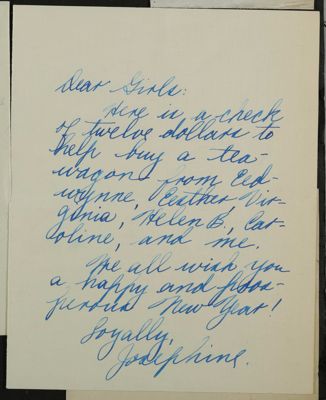 Dear Girls:
Here is a check
of twelve dollars to
help buy a tea-
wagon from Ed-
wynne, Esther Vir-
ginia, Helen B, Car-
oline, and me.
We all wish you
a happy and pros-
perous New Year!
Loyally,
Josephine.